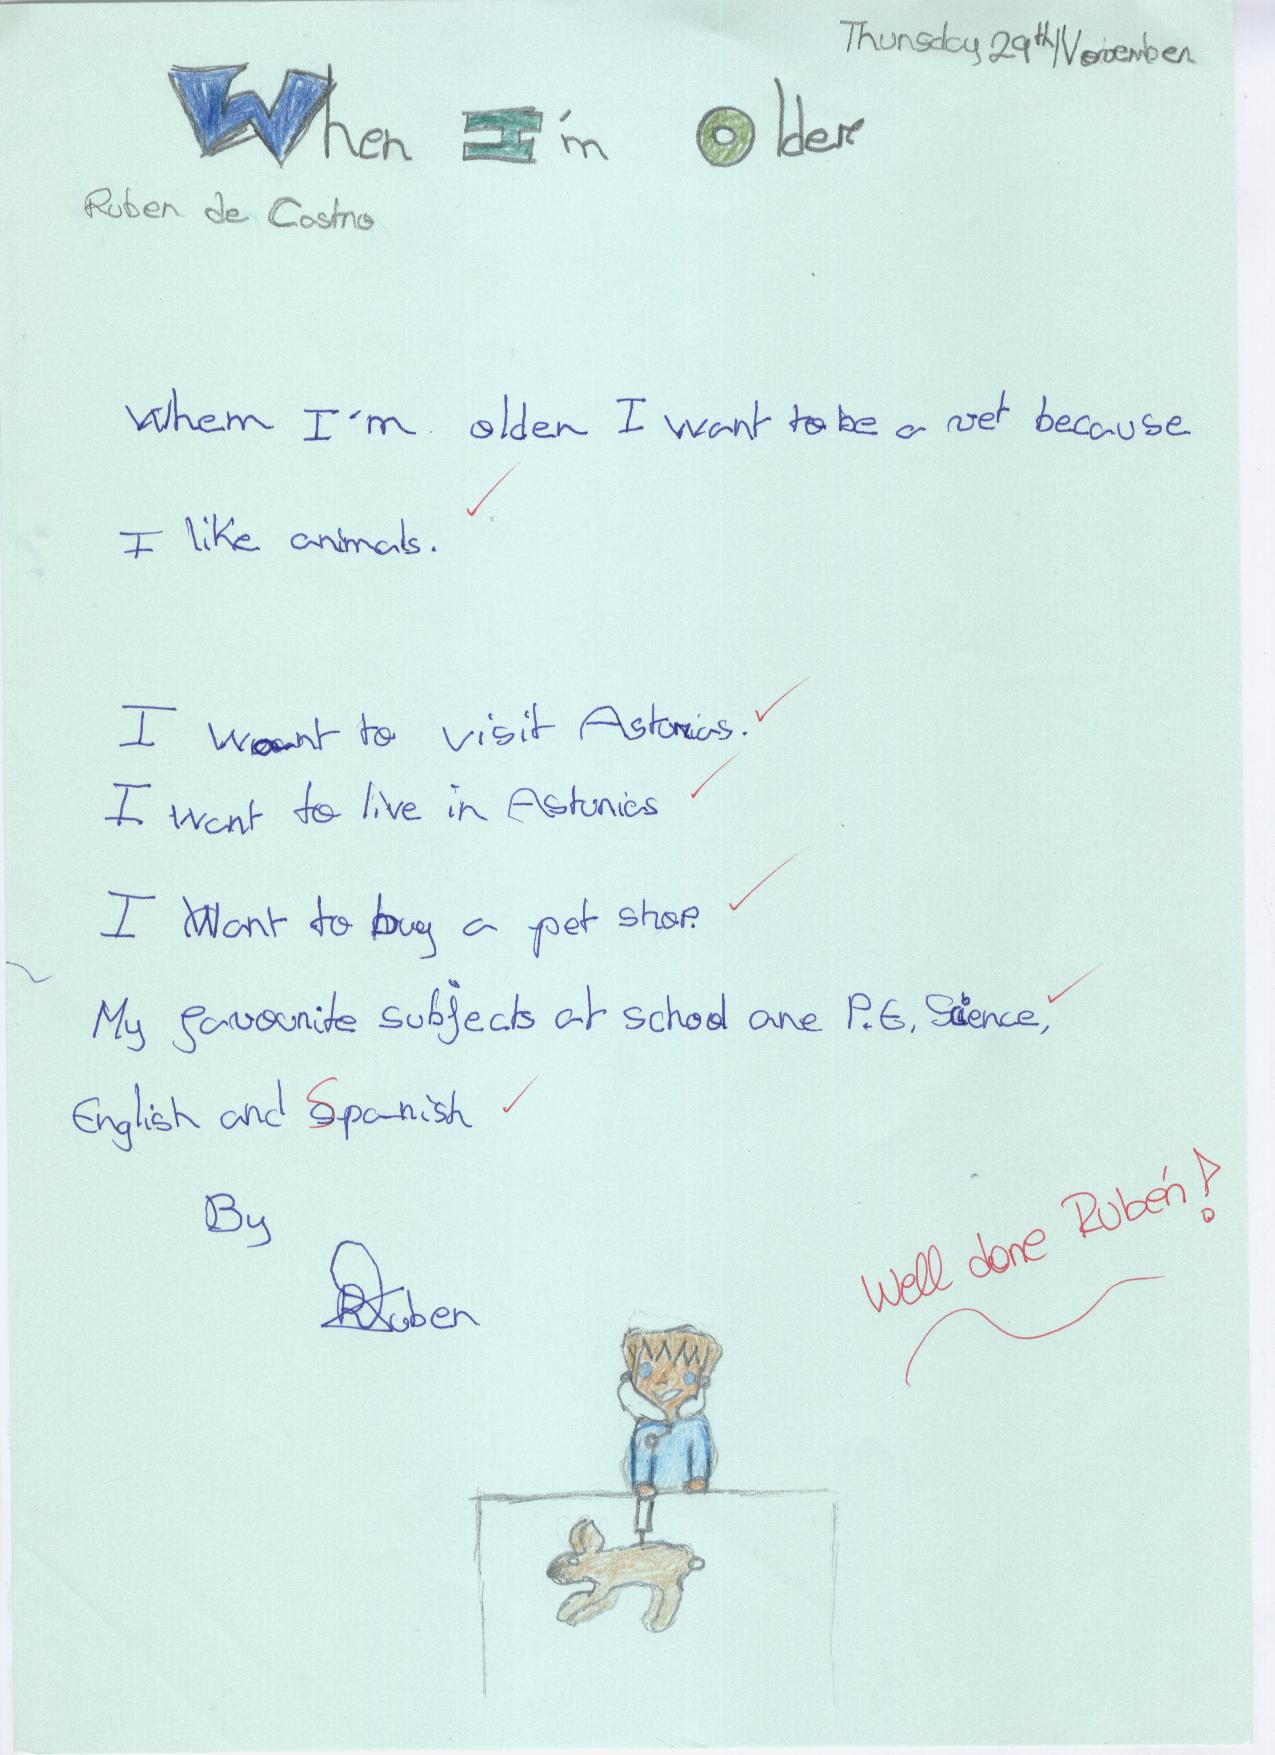 Thursday 29th November
When I'm Older
Ruben de Castro
When I'm older I want to be a vet because
I like animals.
I want to visit Asturias.
I want to live in Asturias
I want to buy a pet shop.
My favourite subjects at school are P.E, Science,
English and Spanish
By
Ruben
Well done Rubén!